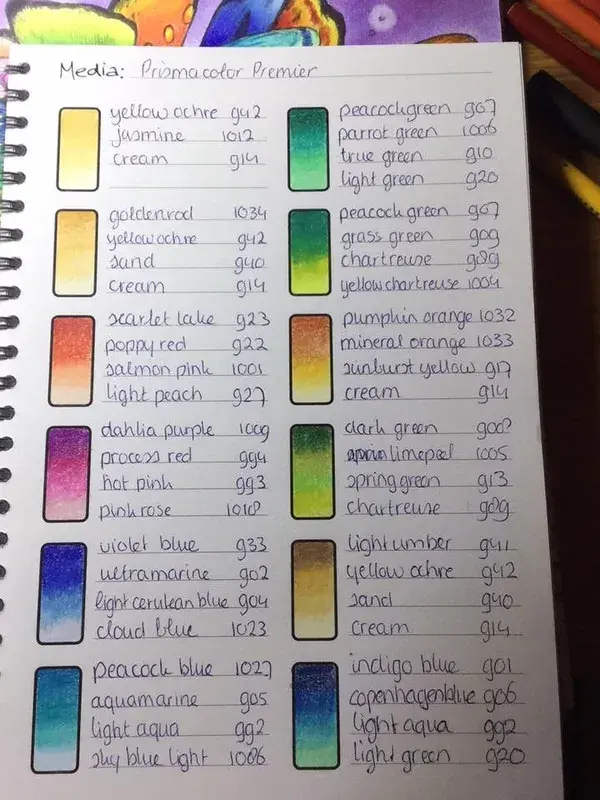 Media: Prismacolor Premier
yellow ochre 942
jasmine 1012
cream 914
goldenrod 1034
yellow ochre 942
sand 940
cream 914
scarlet lake 923
poppy red 922
salmon pink 1001
light peach 927
dahlia purple 1009
process red 994
hot pink 993
pink rose 1018
violet blue 933
ultramarine 902
light cerulean blue 904
cloud blue 1023
peacock blue 1027
aquamarine 905
light aqua 992
sky blue light 1086
peacock green 907
parrot green 1006
true green 910
light green 920
peacock green 907
grass green 909
chartreuse 989
yellow chartreuse 1004
pumpkin orange 1032
mineral orange 1033
sunburst yellow 917
cream 914
dark green 908
limepeel 1005
spring green 913
chartreuse 989
light umber 941
yellow ochre 942
sand 940
cream 914
indigo blue 901
copenhagenblue 906
light aqua 992
light green 920